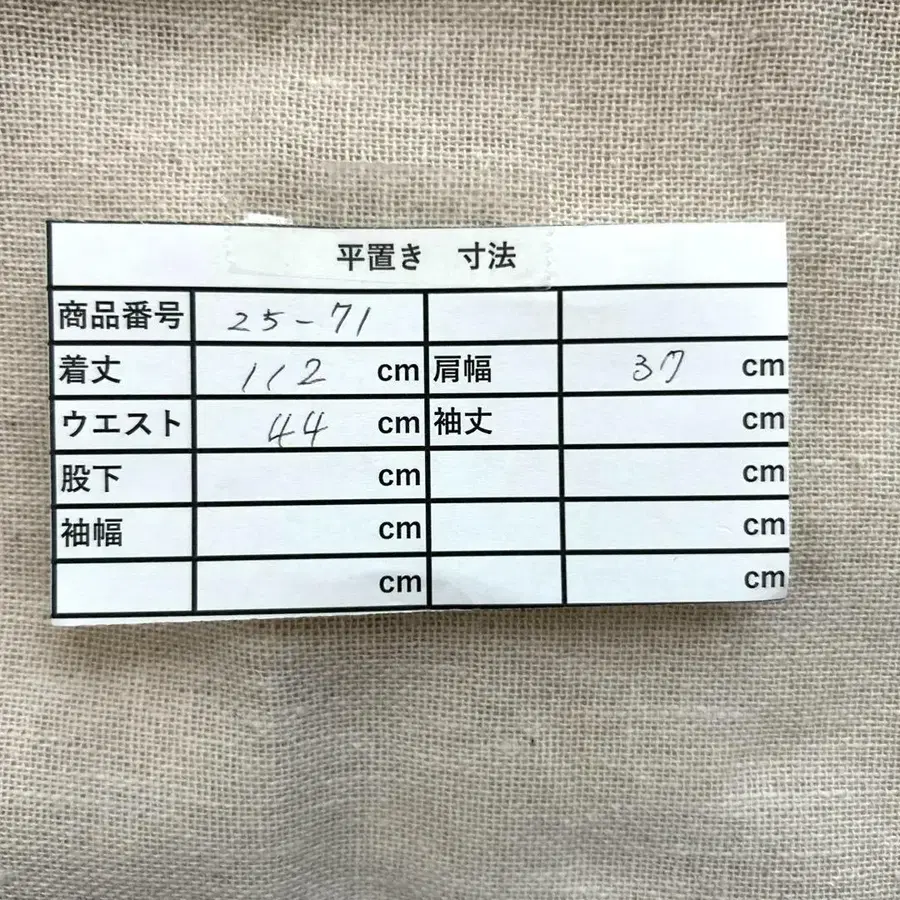 平置き 寸法
商品番号 25-71
着丈 112 cm 肩幅 37 cm
ウエスト 44 cm 袖丈 cm
股下 cm cm
袖幅 cm cm
cm cm